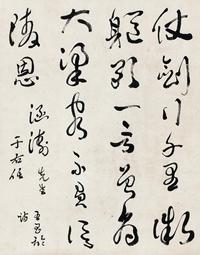 仗劍行千里微
軀敢一言曾為
大梁客不負信
陵恩
先生
于右任